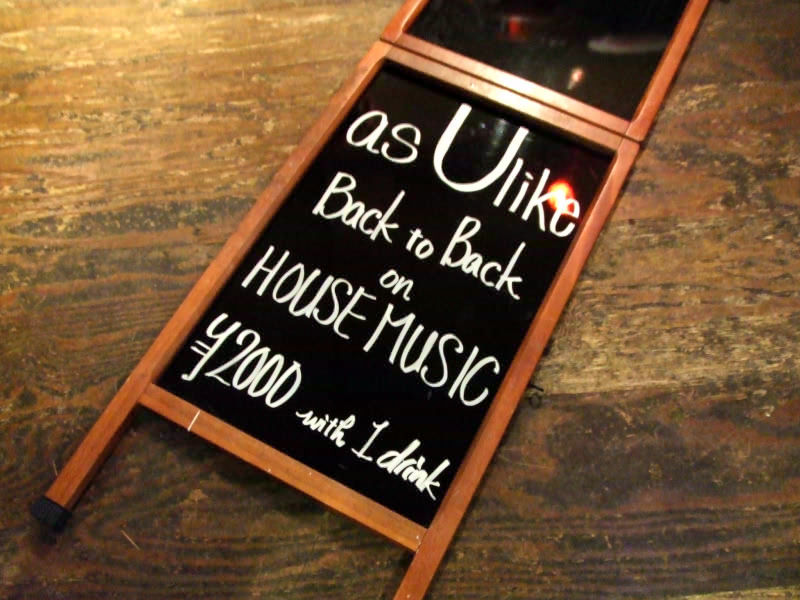 as U like
Back to Back
on
HOUSE MUSIC
¥2000 with 1 drink